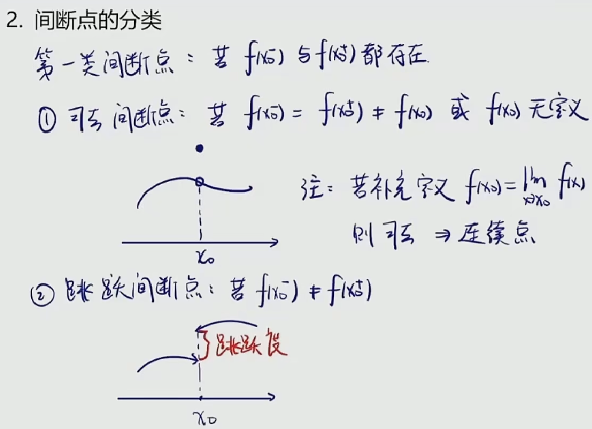 2. 间断点的分类
第一类间断点：若 f(x₀⁻) 与 f(x₀⁺) 都存在.
① 可去间断点：若 f(x₀⁻) = f(x₀⁺) ≠ f(x₀) 或 f(x₀) 无定义
注：若补充定义 f(x₀) = lim f(x)
x→x₀
则可去 ⇒ 连续点
x₀
② 跳跃间断点：若 f(x₀⁻) ≠ f(x₀⁺)
跳跃度
x₀